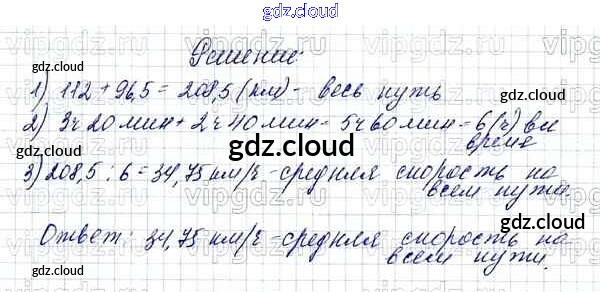 gdz.cloud
Решение:
gdz.cloud gdz.cloud
1) 112 + 96,5 = 208,5 (км) - весь путь
gdz.cloud gdz.cloud
2) 3ч 20 мин + 2ч 40 мин = 5ч 60 мин = 6 (ч) все
время
gdz.cloud
3) 208,5 : 6 = 34,75 км/ч - средняя скорость на
всем пути.
gdz.cloud gdz.cloud
Ответ: 34,75 км/ч - средняя скорость на
всем пути.
gdz.cloud gdz.cloud